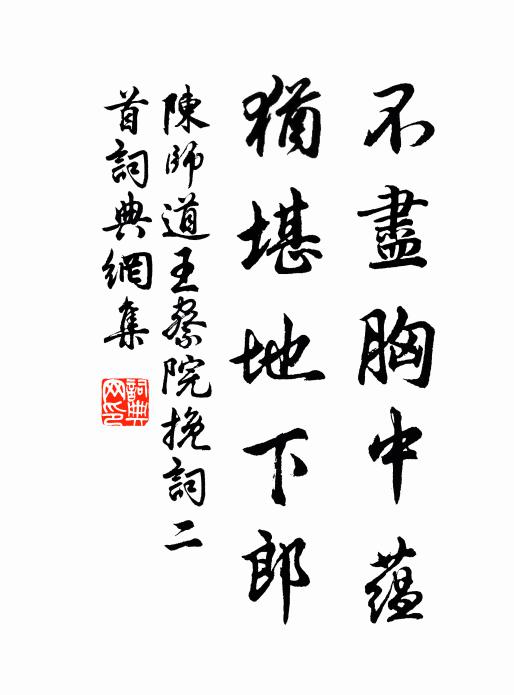 不盡胸中蘊
猶堪地下郎
陳師道王察院挽詞二
首詞典網集
詞典
网印